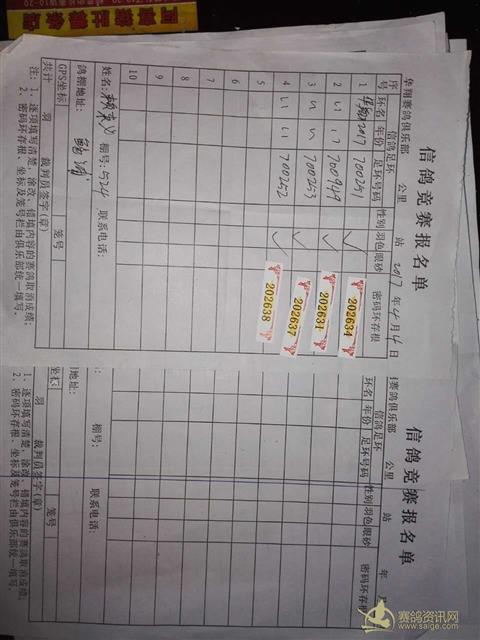 信鸽竞赛报名单
华翔赛鸽俱乐部 公里 站 2017 年 4 月 4 日
序号 信鸽足环 性别 羽色 眼砂 密码环存根
环名 年份 足环号码
1 华翔 2017 700251 ✓ 202634
2 〃 〃 700949 ✓ 202631
3 〃 〃 700253 ✓ 202637
4 〃 〃 700252 ✓ 202638
5
6
7
8
9
10
姓名: 棚号: 524 联系电话:
鸽棚地址:
GPS坐标
共计 羽 裁判员签字(章) 笼号
注: 1、逐项填写清楚,涂改、错填内容的赛鸽取消成绩;
2、密码环存根、坐标及笼号栏由俱乐部统一填写。
信鸽竞赛报名单
赛鸽俱乐部 公里 站 年 月
信鸽足环 性别 羽色 眼砂 密码环存根
环名 年份 足环号码
棚号: 联系电话:
地址:
坐标
羽 裁判员签字(章) 笼号
1、逐项填写清楚,涂改、错填内容的赛鸽取消成绩;
2、密码环存根、坐标及笼号栏由俱乐部统一填写。
赛鸽资讯网
www.saige.com